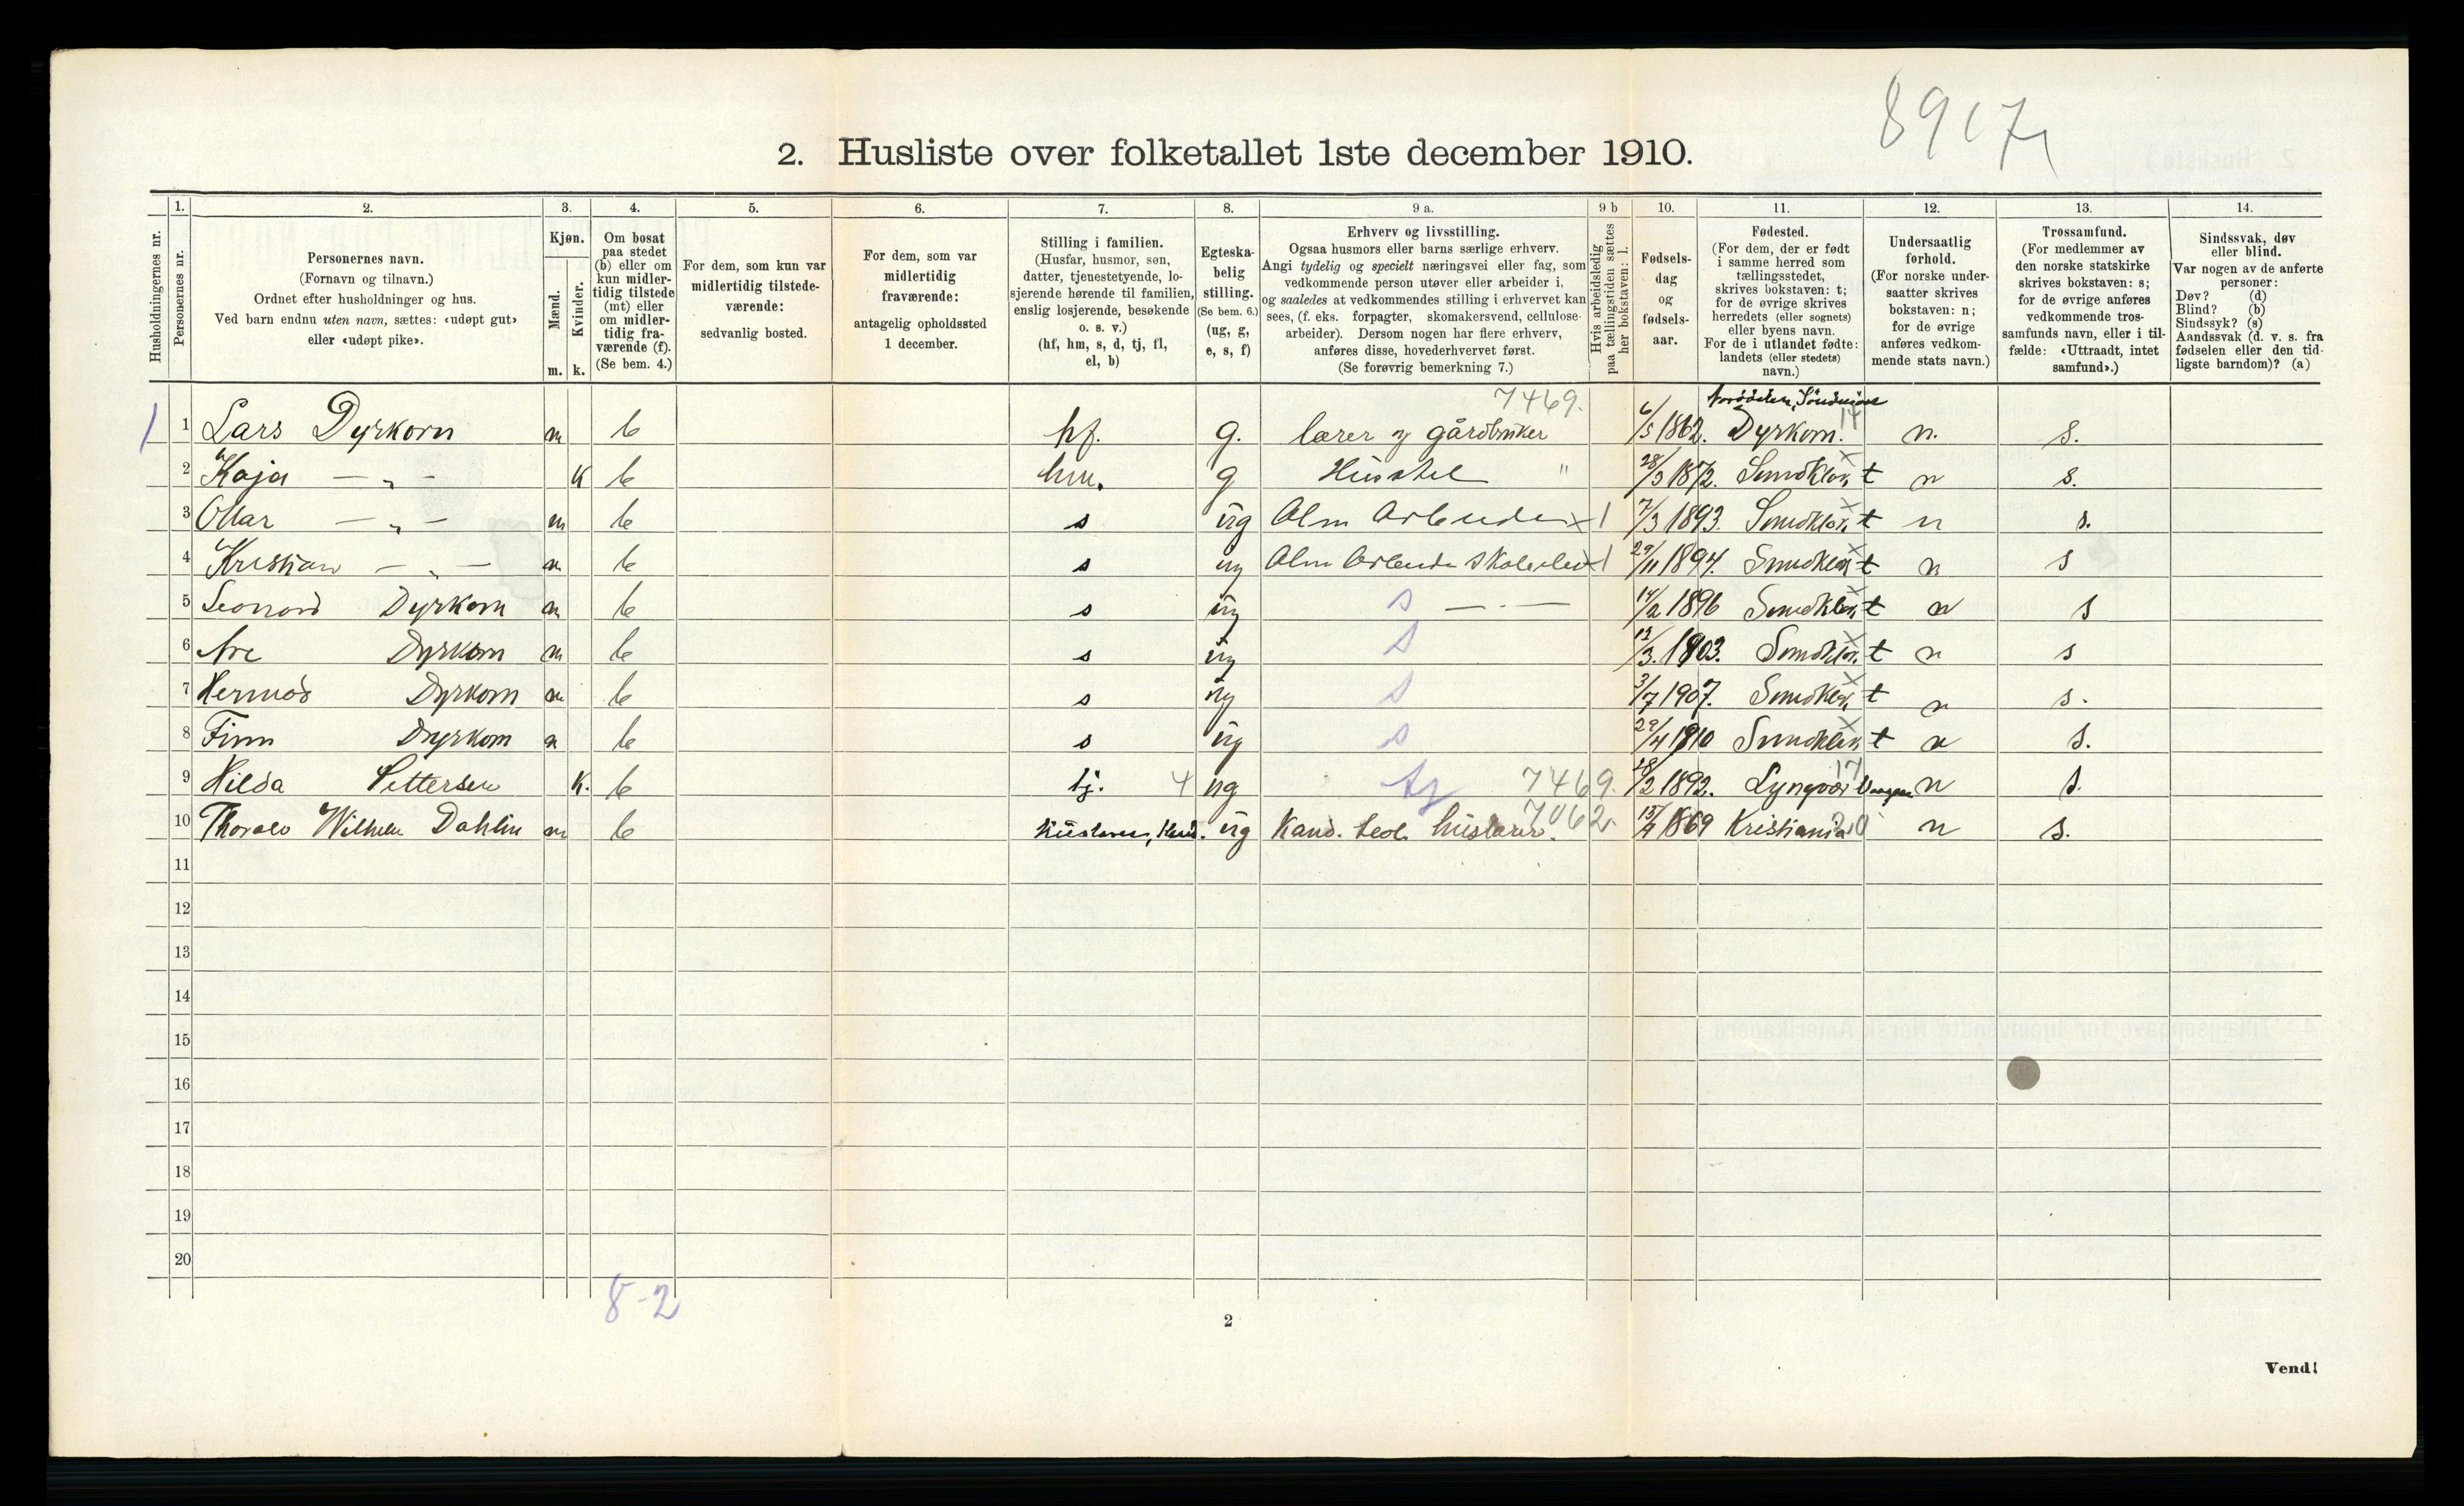 8917
2. Husliste over folketallet 1ste december 1910.
Husholdningernes nr.
1.
Personernes nr.
2.
Personernes navn.
(Fornavn og tilnavn.)
Ordnet efter husholdninger og hus.
Ved barn endnu uten navn, sættes: «udøpt gut»
eller «udøpt pike».
3.
Kjøn.
Mænd.
Kvinder.
m. k.
4.
Om bosat
paa stedet
(b) eller om
kun midler-
tidig tilstede
(mt) eller
om midler-
tidig fra-
værende (f).
(Se bem. 4.)
5.
For dem, som kun var
midlertidig tilstede-
værende:
sedvanlig bosted.
6.
For dem, som var
midlertidig
fraværende:
antagelig opholdssted
1 december.
7.
Stilling i familien.
(Husfar, husmor, søn,
datter, tjenestetyende, lo-
sjerende hørende til familien,
enslig losjerende, besøkende
o. s. v.)
(hf, hm, s, d, tj, fl,
el, b)
8.
Egteska-
belig
stilling.
(Se bem. 6.)
(ug, g,
e, s, f)
9 a.
Erhverv og livsstilling.
Ogsaa husmors eller barns særlige erhverv.
Angi tydelig og specielt næringsvei eller fag, som
vedkommende person utøver eller arbeider i,
og saaledes at vedkommendes stilling i erhvervet kan
sees, (f. eks. forpagter, skomakersvend, cellulose-
arbeider). Dersom nogen har flere erhverv,
anføres disse, hovederhvervet først.
(Se forøvrig bemerkning 7.)
9 b
Hvis arbeidsledig
paa tællingstiden sættes
her bokstaven: l.
10.
Fødsels-
dag
og
fødsels-
aar.
11.
Fødested.
(For dem, der er født
i samme herred som
tællingsstedet,
skrives bokstaven: t;
for de øvrige skrives
herredets (eller sognets)
eller byens navn.
For de i utlandet fødte:
landets (eller stedets)
navn.)
12.
Undersaatlig
forhold.
(For norske under-
saatter skrives
bokstaven: n;
for de øvrige
anføres vedkom-
mende stats navn.)
13.
Trossamfund.
(For medlemmer av
den norske statskirke
skrives bokstaven: s;
for de øvrige anføres
vedkommende tros-
samfunds navn, eller i til-
fælde: «Uttraadt, intet
samfund».)
14.
Sindssvak, døv
eller blind.
Var nogen av de anførte
personer:
Døv? (d)
Blind? (b)
Sindssyk? (s)
Aandssvak (d. v. s. fra
fødselen eller den tid-
ligste barndom)? (a)
7469.
1 1 Lars Dyrkorn m b hf. g. lærer og gårdbruker 6/5 1862. Dyrkorn. 14 n. s.
2 Kaja — „ — k b hm. g Husstel " 28/3 1872. t n s.
3 — „ — m b s ug Alm Arbeider x l 7/3 1893. t n s.
4 Kristian — „ — m b s ug Alm Arbeide skoleelev x l 29/11 1894. t n s
5 Leonard Dyrkorn m b s ug s — · — 14/2 1896 t n s
6 Are Dyrkorn m b s ug s 12/3. 1903. t n s
7 Hermod Dyrkorn m b s ug s 3/7 1907. t n s.
8 Finn Dyrkorn m b s ug s 29/4 1910 t n s.
9 Hilda Pettersen k. b tj. 4 ug tj 7469. 18/2 1892. Lyngvær 17 n s.
10 Wilhelm Dahlin m b ug Kand. teol huslærer. 7062 15/4 1869 Kristiania n s.
11
12
13
14
15
16
17
18
19
20
8-2
2
Vend!